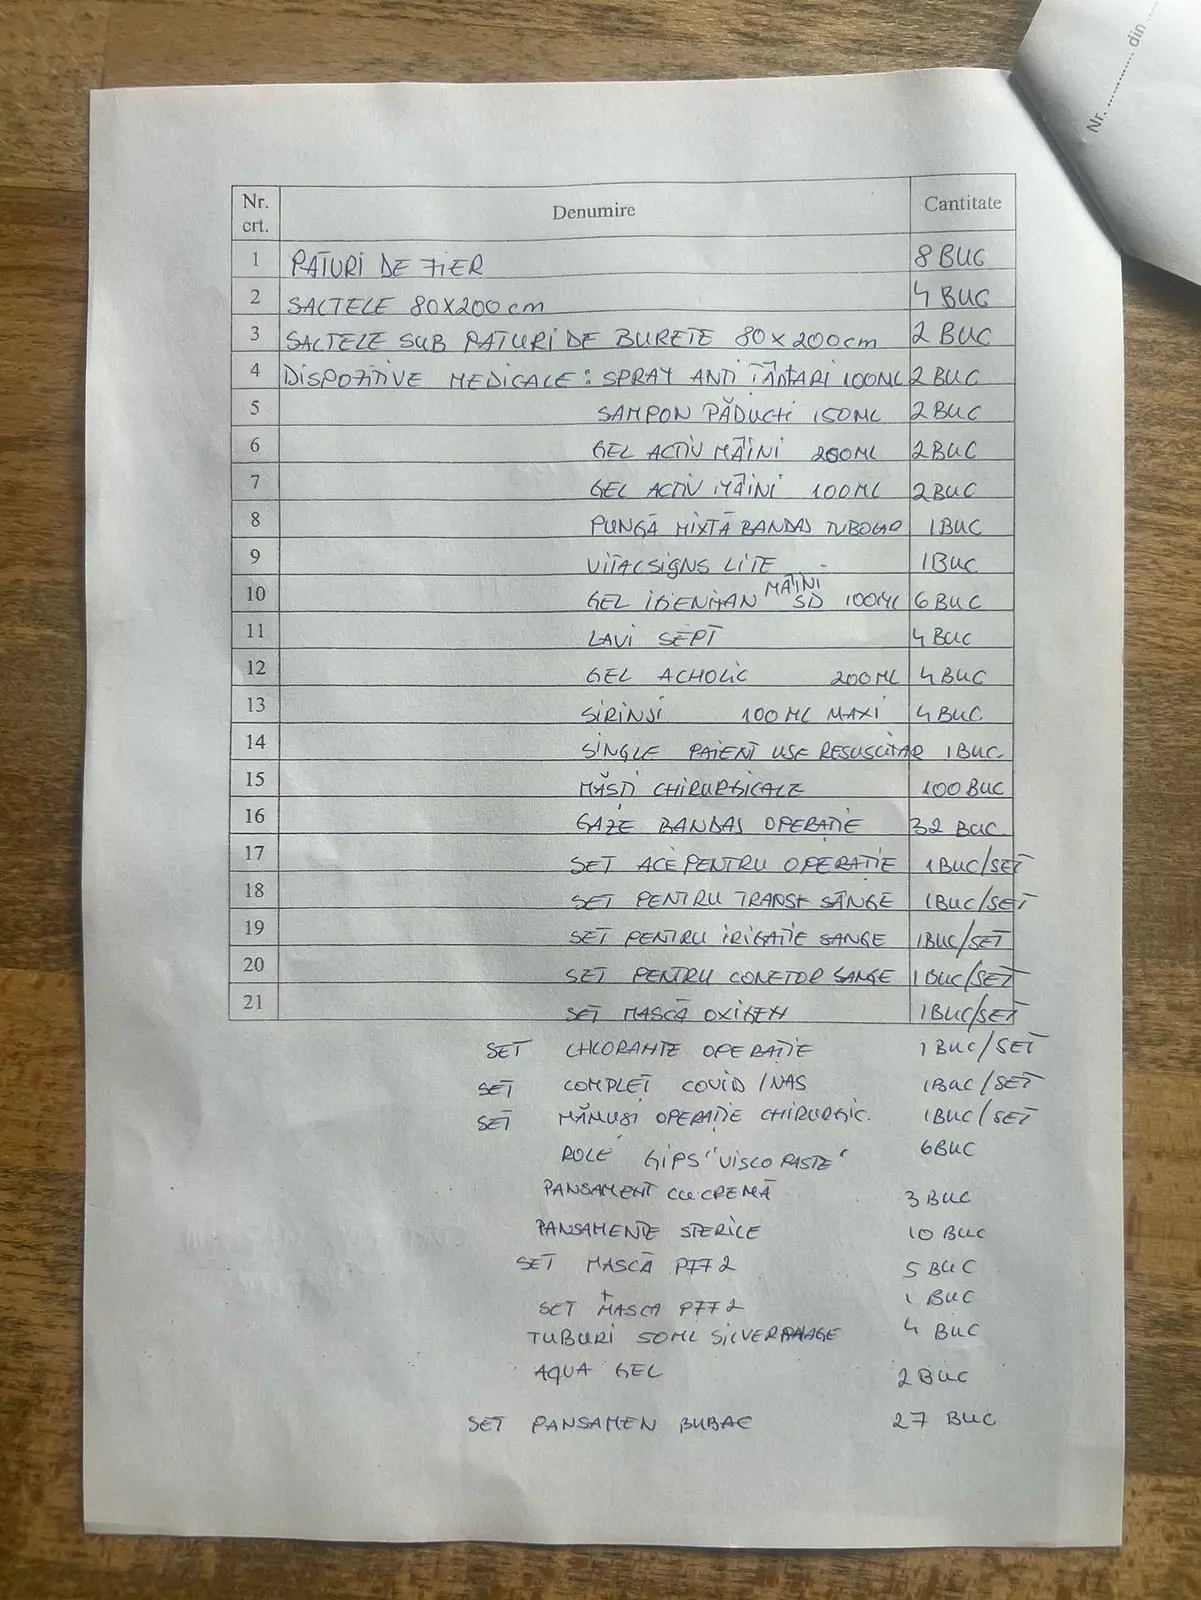 Nr. ........... din ......
Nr. crt. Denumire Cantitate
1 PATURI DE FIER 8 BUC
2 SALTELE 80X200 cm 4 BUC
3 SALTELE SUB PATURI DE BURETE 80 X 200cm 2 BUC
4 DISPOZITIVE MEDICALE: SPRAY ANTI TÂNTARI 100ML 2 BUC
5 SAMPON PĂDUCHI 150ML 2 BUC
6 GEL ACTIV MÂINI 250ML 2 BUC
7 GEL ACTIV MÂINI 100ML 2 BUC
8 PUNGĂ MIXTĂ BANDAJ 1 BUC
9 VITALSIGNS LITE 1 BUC
10 GEL MÂINI SD 100ML 6 BUC
11 LAVI SEPT 4 BUC
12 GEL ALHOLIC 200ML 4 BUC
13 SIRINJI 100 ML MAXI 4 BUC
14 SINGLE PAIENT USE RESUSCITAR 1 BUC.
15 MĂSTI CHIRURGICALE 100 BUC
16 GAZE BANDAJ OPERATIE 32 BUC
17 SET ACE PENTRU OPERATIE 1 BUC/SET
18 SET PENTRU TRANSF SÂNGE 1 BUC/SET
19 SET PENTRU IRIGATIE SANGE 1 BUC/SET
20 SET PENTRU CONETOR SANGE 1 BUC/SET
21 SET MASCĂ OXIGEN 1 BUC/SET
SET OPERATIE 1 BUC/SET
SET COMPLET COVID /NAS 1 BUC/SET
SET MĂNUSI OPERATIE CHIRURGIC. 1 BUC/SET
ROLE GIPS "VISCO PASTE" 6 BUC
PANSAMENT CU CREMĂ 3 BUC
PANSAMENTE STERILE 10 BUC
SET MASCĂ PFF2 5 BUC
SET + MASCA PFF2 1 BUC
TUBURI 50ML 4 BUC
AQUA GEL 2 BUC
SET PANSAMEN 27 BUC